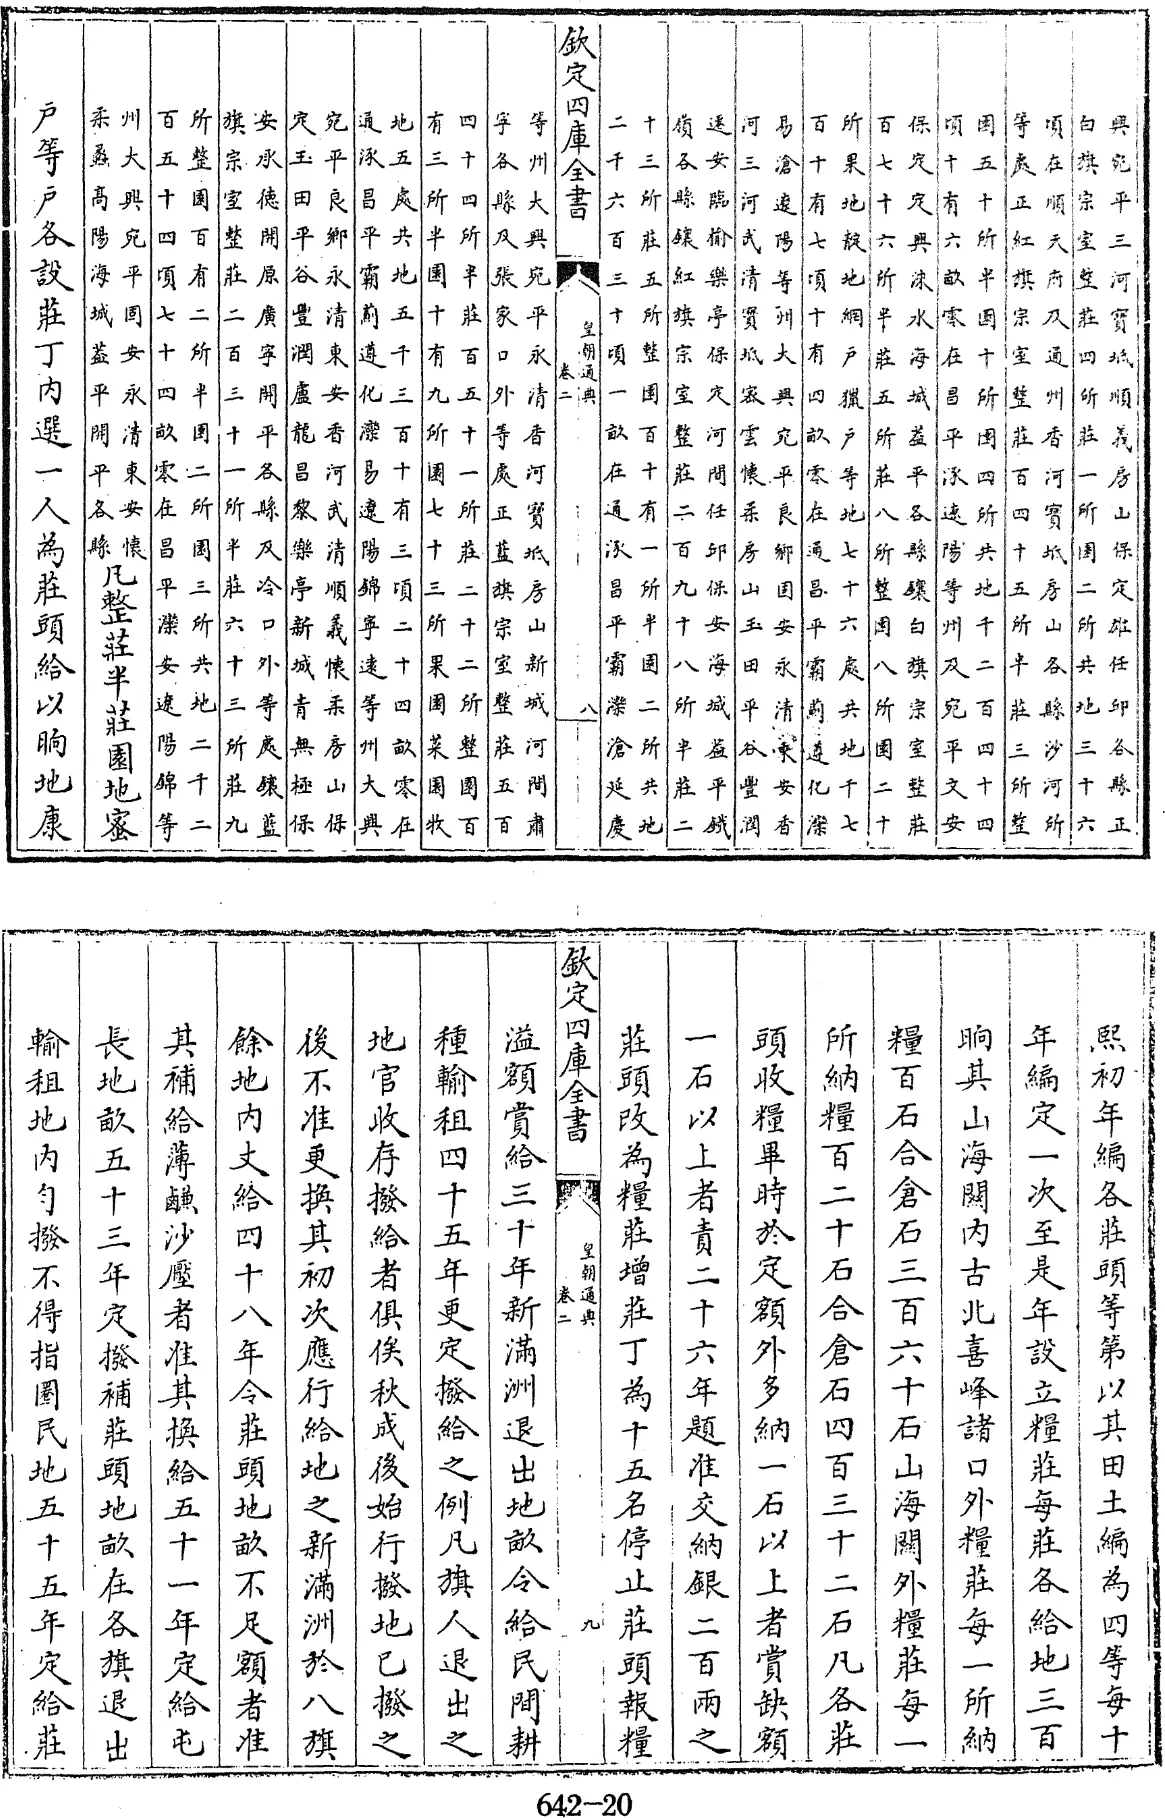 興宛平三河寶坻順義房山保定雄任邱各縣正
白旗宗室整莊四所莊一所園二所共地三十六
頃在順天府及通州香河寶坻房山各縣沙河所
等處正紅旗宗室整莊百四十五所半莊三所整
園五十所半園十所園四所共地千二百四十四
頃十有六畝零在昌平涿遼陽等州及宛平文安
保定定興淶水海城葢平各縣鑲白旗宗室整莊
百七十六所半莊五所莊八所整園八所園二十
所果地靛地網戶獵戶等地七十六處共地千七
百十有七頃十有四畝零在通昌平霸薊遵化灤
易滄遼陽等州大興宛平良鄉固安永清東安香
河三河武清寶坻宻雲懷柔房山玉田平谷豐潤
遷安臨榆樂亭保定河間任邱保安海城葢平鐵
嶺各縣鑲紅旗宗室整莊二百九十八所半莊二
十三所莊五所整園百十有一所半園二所共地
二千六百三十頃一畝在通涿昌平霸灤滄延慶
欽定四庫全書
皇朝通典
卷二
八
等州大興宛平永清香河寶坻房山新城河間肅
寧各縣及張家口外等處正藍旗宗室整莊五百
四十四所半莊百五十一所莊二十二所整園百
有三所半園十有九所園七十三所果園菜園牧
地五處共地五千三百十有三頃二十四畝零在
通涿昌平霸薊遵化灤易遼陽錦寧遠等州大興
宛平良鄉永清東安香河武清順義懷柔房山保
定玉田平谷豐潤盧龍昌黎樂亭新城青無極保
安承德開原廣寧開平各縣及冷口外等處鑲藍
旗宗室整莊二百三十一所半莊六十三所莊九
所整園百有二所半園二所園三所共地二千二
百五十四頃七十四畝零在昌平灤安遼陽錦等
州大興宛平固安永清東安懷
柔蠡高陽海城葢平開平各縣
凡整莊半莊園地宻
戶等戶各設莊丁內選一人為莊頭給以晌地康
熙初年編各莊頭等第以其田土編為四等每十
年編定一次至是年設立糧莊每莊各給地三百
晌其山海關內古北喜峰諸口外糧莊每一所納
糧百石合倉石三百六十石山海關外糧莊每一
所納糧百二十石合倉石四百三十二石凡各莊
頭收糧畢時於定額外多納一石以上者賞缺額
一石以上者責二十六年題准交納銀二百兩之
莊頭改為糧莊增莊丁為十五名停止莊頭報糧
欽定四庫全書
皇朝通典
卷二
九
溢額賞給三十年新滿洲退出地畝令給民間耕
種輸租四十五年更定撥給之例凡旗人退出之
地官收存撥給者俱俟秋成後始行撥地已撥之
後不准更換其初次應行給地之新滿洲於八旗
餘地內丈給四十八年令莊頭地畝不足額者准
其補給薄鹻沙壓者准其換給五十一年定給屯
長地畝五十三年定撥補莊頭地畝在各旗退出
輸租地內勻撥不得指圈民地五十五年定給莊
642-20